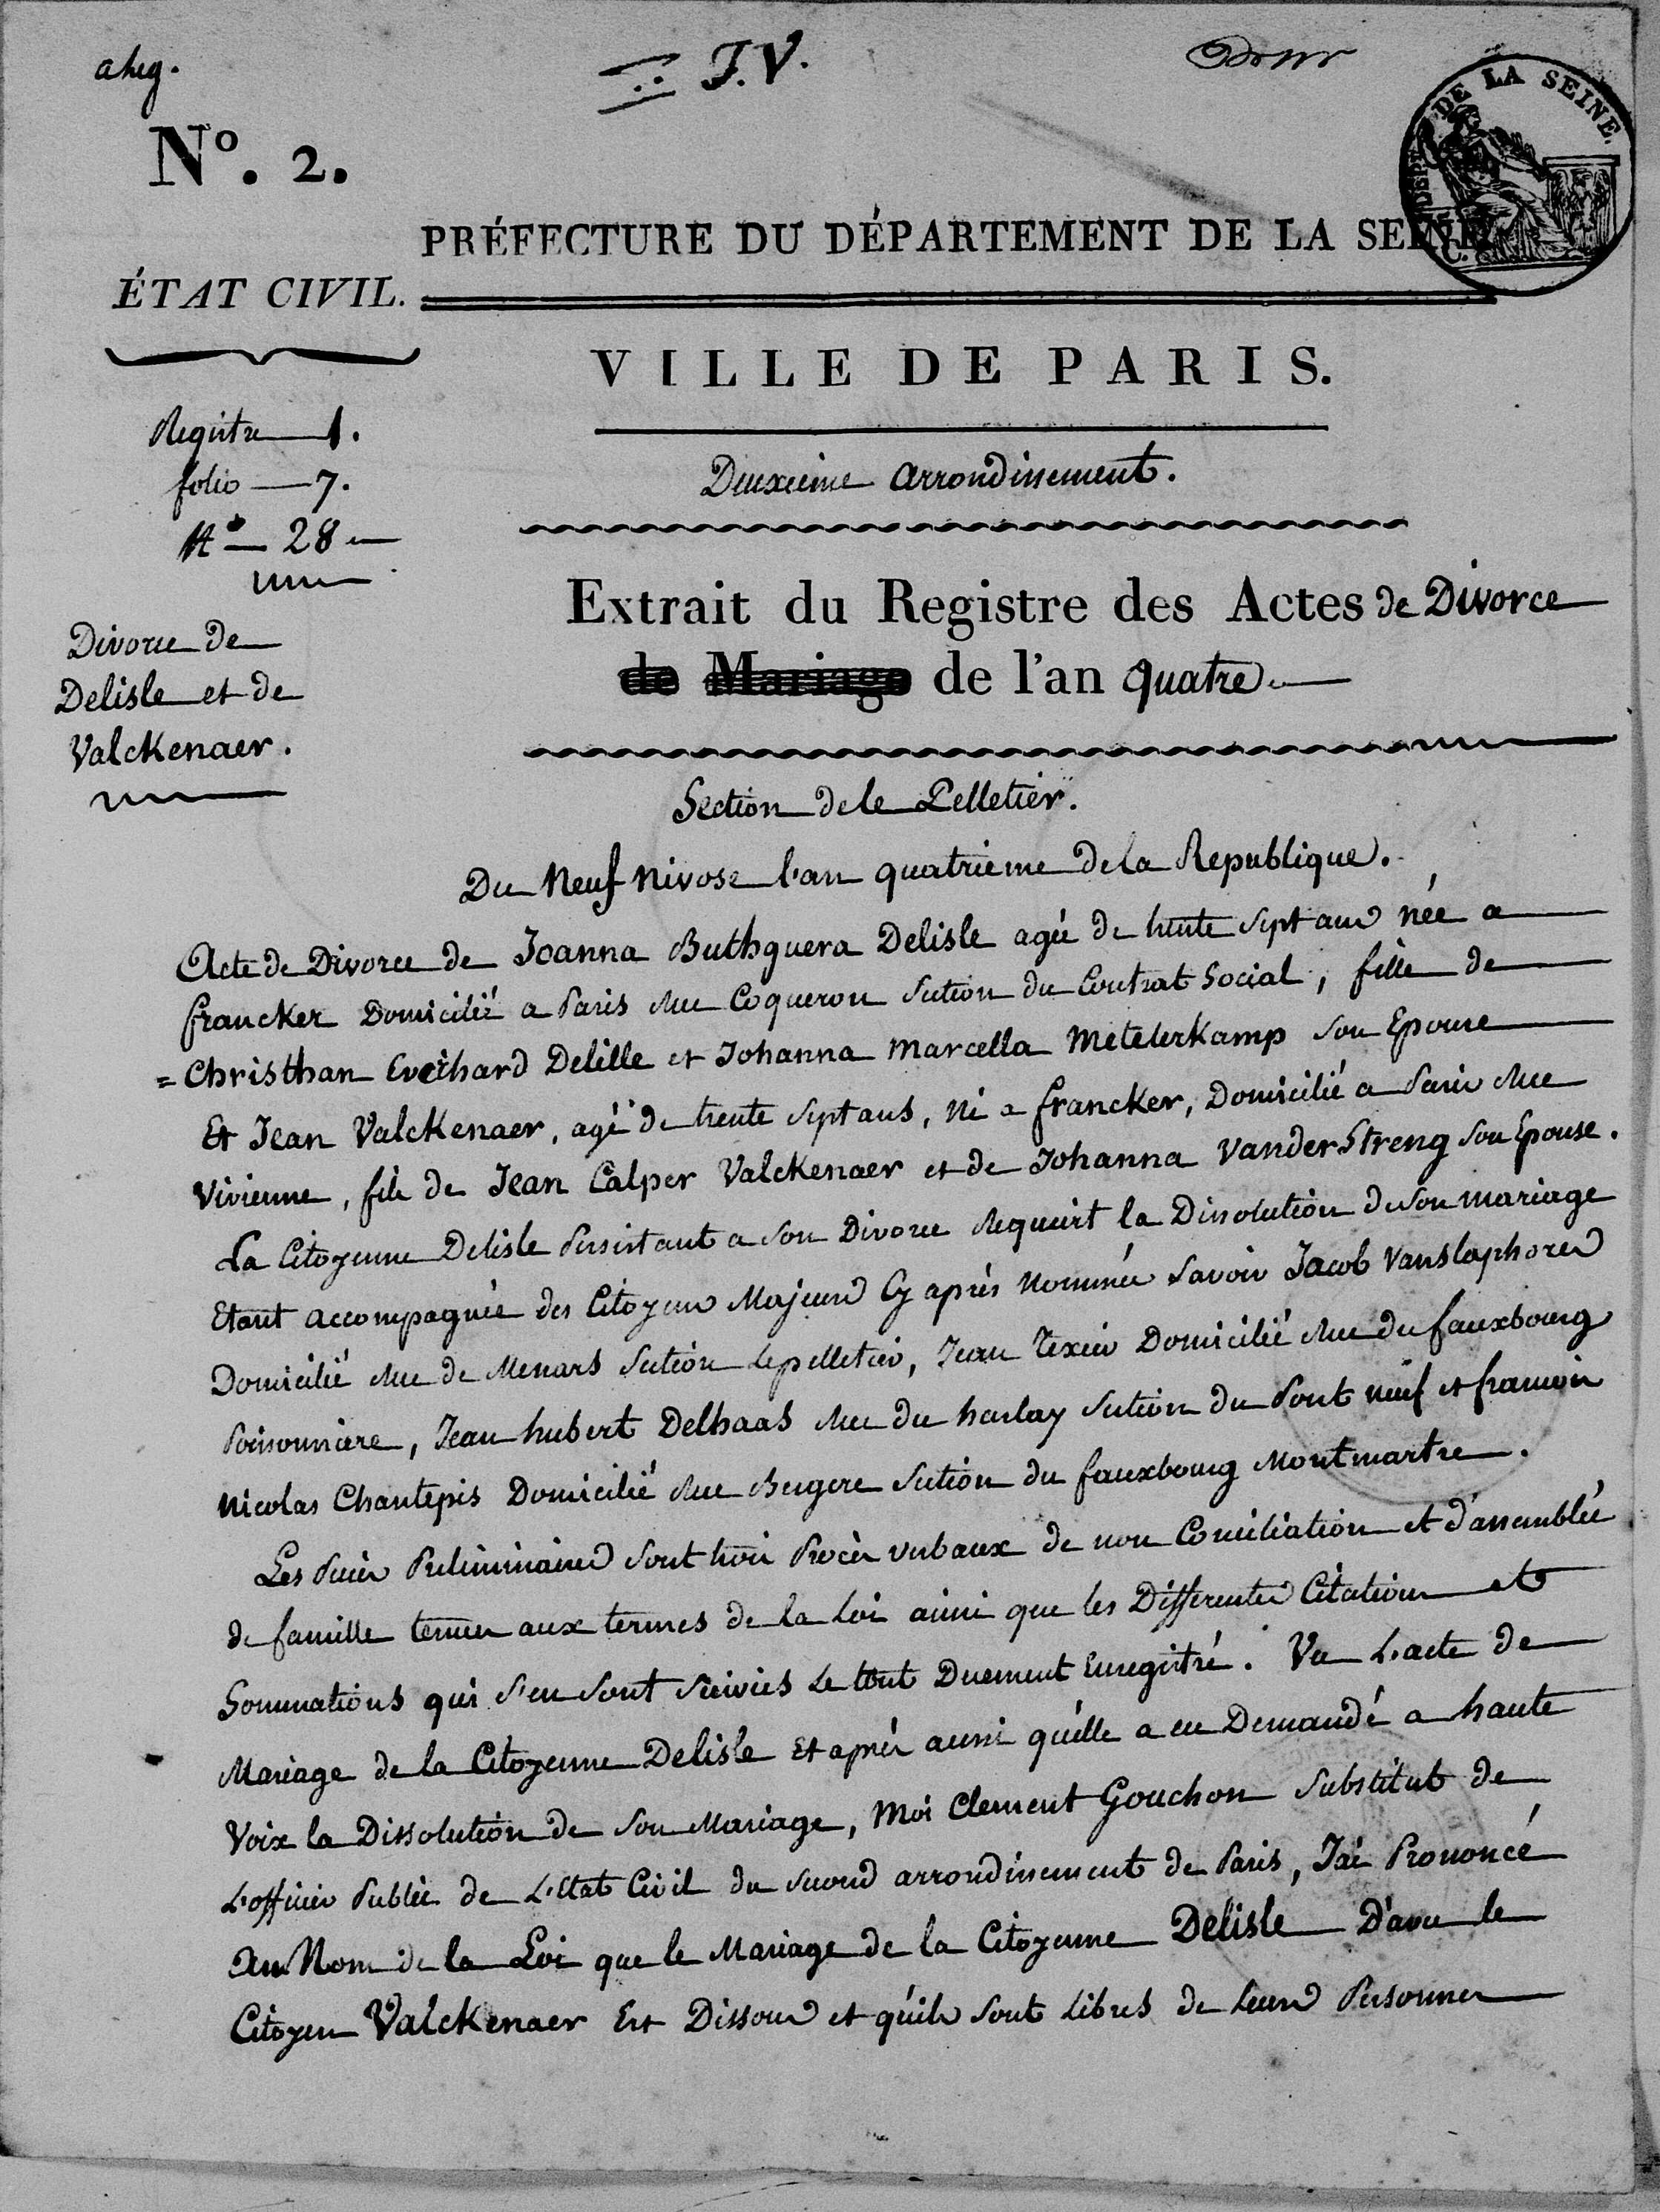 J.V.
N°. 2.
DEPT DE LA SEINE.
PRÉFECTURE DU DÉPARTEMENT DE LA SEINE
ÉTAT CIVIL.
VILLE DE PARIS.
Registre 1.
folio — 7.
N° — 28
Deuxieme arrondissement.
Extrait du Registre des Actes de Divorce
de Mariage de l'an quatre
Divorce de
Delisle et de
Valckenaer.
Section de le Pelletier.
Du Neuf Nivose l'an quatrieme de la Republique.
Acte de Divorce de Joanna Buthguera Delisle agée de trente sept ans née a
francker Domicilié a Paris rue Coqueron Section du Contrat Social, fille de
= Christhan Everhard Delille et Johanna Marcella Metelerkamp son Epouse
Et Jean Valckenaer, agé de trente sept ans, né a francker, Domicilié a Paris rue
Vivienne, fils de Jean Calper Valckenaer et de Johanna VanderStreng son Epouse.
La Citoyenne Delisle Persistant a son Divorce Requiert la Dissolution de son mariage
Etant accompagnée des Citoyens Majeurs Cy aprés Nommés Savoir Jacob Vanslaphores
Domicilié rue de Menars Section Lepelletier, Jean Texier Domicilié rue du fauxbourg
Poissonniere, Jean hubert Delhaas rue du harlay Section du Pont neuf et francois
Nicolas Chantepis Domicilié rue Bergere Section du fauxbourg Montmartre.
Les Pieces Preliminaires sont trois Procès verbaux de non Conciliation et d'assemblée
de famille tenues aux termes de la Loi ainsi que les Differentes Citations et
Sommations qui s'en sont suivies Le tout Duement Enregistré. Vu L'acte de
Mariage de la Citoyenne Delisle Et aprés aussi qu'elle a eu Demandé a haute
Voix la Dissolution de son Mariage, Moi Clement Gouchon Substitut de
L'officier Public de L'Etat Civil du second arrondissement de Paris, J'ai Prononcé
Au Nom de la Loi que le Mariage de la Citoyenne Delisle D'avec le
Citoyen Valckenaer Est Dissous et qu'ils sont Libres de Leurs Personnes